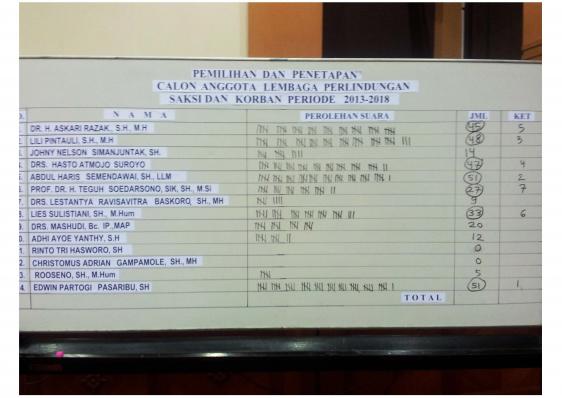 PEMILIHAN DAN PENETAPAN
CALON ANGGOTA LEMBAGA PERLINDUNGAN
SAKSI DAN KORBAN PERIODE 2013-2018
O. N A M A PEROLEHAN SUARA JML KET
DR. H. ASKARI RAZAK, S.H., M.H 45 5
2. LILI PINTAULI, S.H., M.H 48 3
JOHNY NELSON SIMANJUNTAK, SH. 14
DRS. HASTO ATMOJO SUROYO 47 4
5. ABDUL HARIS SEMENDAWAI, SH., LLM 51 2
6. PROF. DR. H. TEGUH SOEDARSONO, SIK, SH., M.Si 27 7
7. DRS. LESTANTYA RAVISAVITRA BASKORO, SH., MH 9
8. LIES SULISTIANI, SH., M.Hum 33 6
9. DRS. MASHUDI, Bc. IP.,MAP 20
0. ADHI AYOE YANTHY, S.H 12
1. RINTO TRI HASWORO, SH 0
2. CHRISTOMUS ADRIAN GAMPAMOLE, SH., MH 0
3. ROOSENO, SH., M.Hum 5
4. EDWIN PARTOGI PASARIBU, SH 51 1
T O T A L